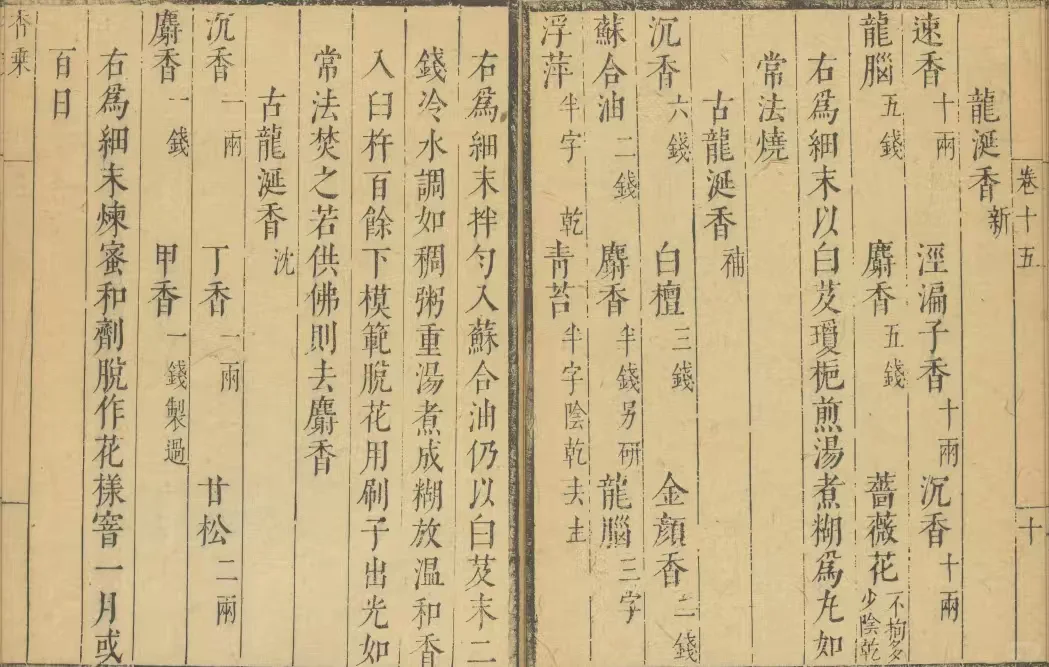 卷十五 十
龍涎香 新
速香 十兩 涇漏子香 十兩 沉香 十兩
龍腦 五錢 麝香 五錢 薔薇花 不拘多少陰乾
右爲細末以白芨瓊梔煎湯煮糊爲丸如
常法燒
古龍涎香 補
沉香 六錢 白檀 三錢 金顔香 二錢
蘇合油 二錢 麝香 半錢另研 龍腦 三字
浮萍 半字 乾 青苔 半字陰乾去土
右爲細末拌勻入蘇合油仍以白芨末二
錢冷水調如稠粥重湯煮成糊放溫和香
入臼杵百餘下模範脫花用刷子出光如
常法焚之若供佛則去麝香
古龍涎香 沈
沉香 一兩 丁香 一兩 甘松 二兩
麝香 一錢 甲香 一錢製過
右爲細末煉蜜和劑脫作花樣窨一月或
百日
香乗